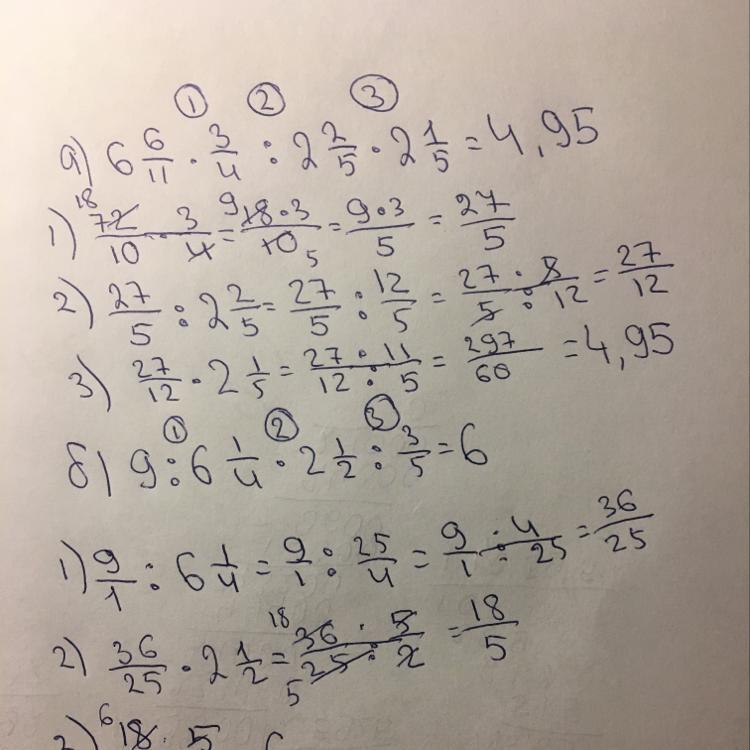 ① ② ③
а) 6 6/11 · 3/4 : 2 2/5 · 2 1/5 = 4,95
1) 72/10 · 3/4 = 18·3/10 = 9·3/5 = 27/5
2) 27/5 : 2 2/5 = 27/5 : 12/5 = 27·5/5:12 = 27/12
3) 27/12 · 2 1/5 = 27·11/12:5 = 297/60 = 4,95
① ② ③
б) 9 : 6 1/4 · 2 1/2 : 3/5 = 6
1) 9/1 : 6 1/4 = 9/1 : 25/4 = 9/1 · 4/25 = 36/25
2) 36/25 · 2 1/2 = 36·5/25·2 = 18/5
3) 18 · 5